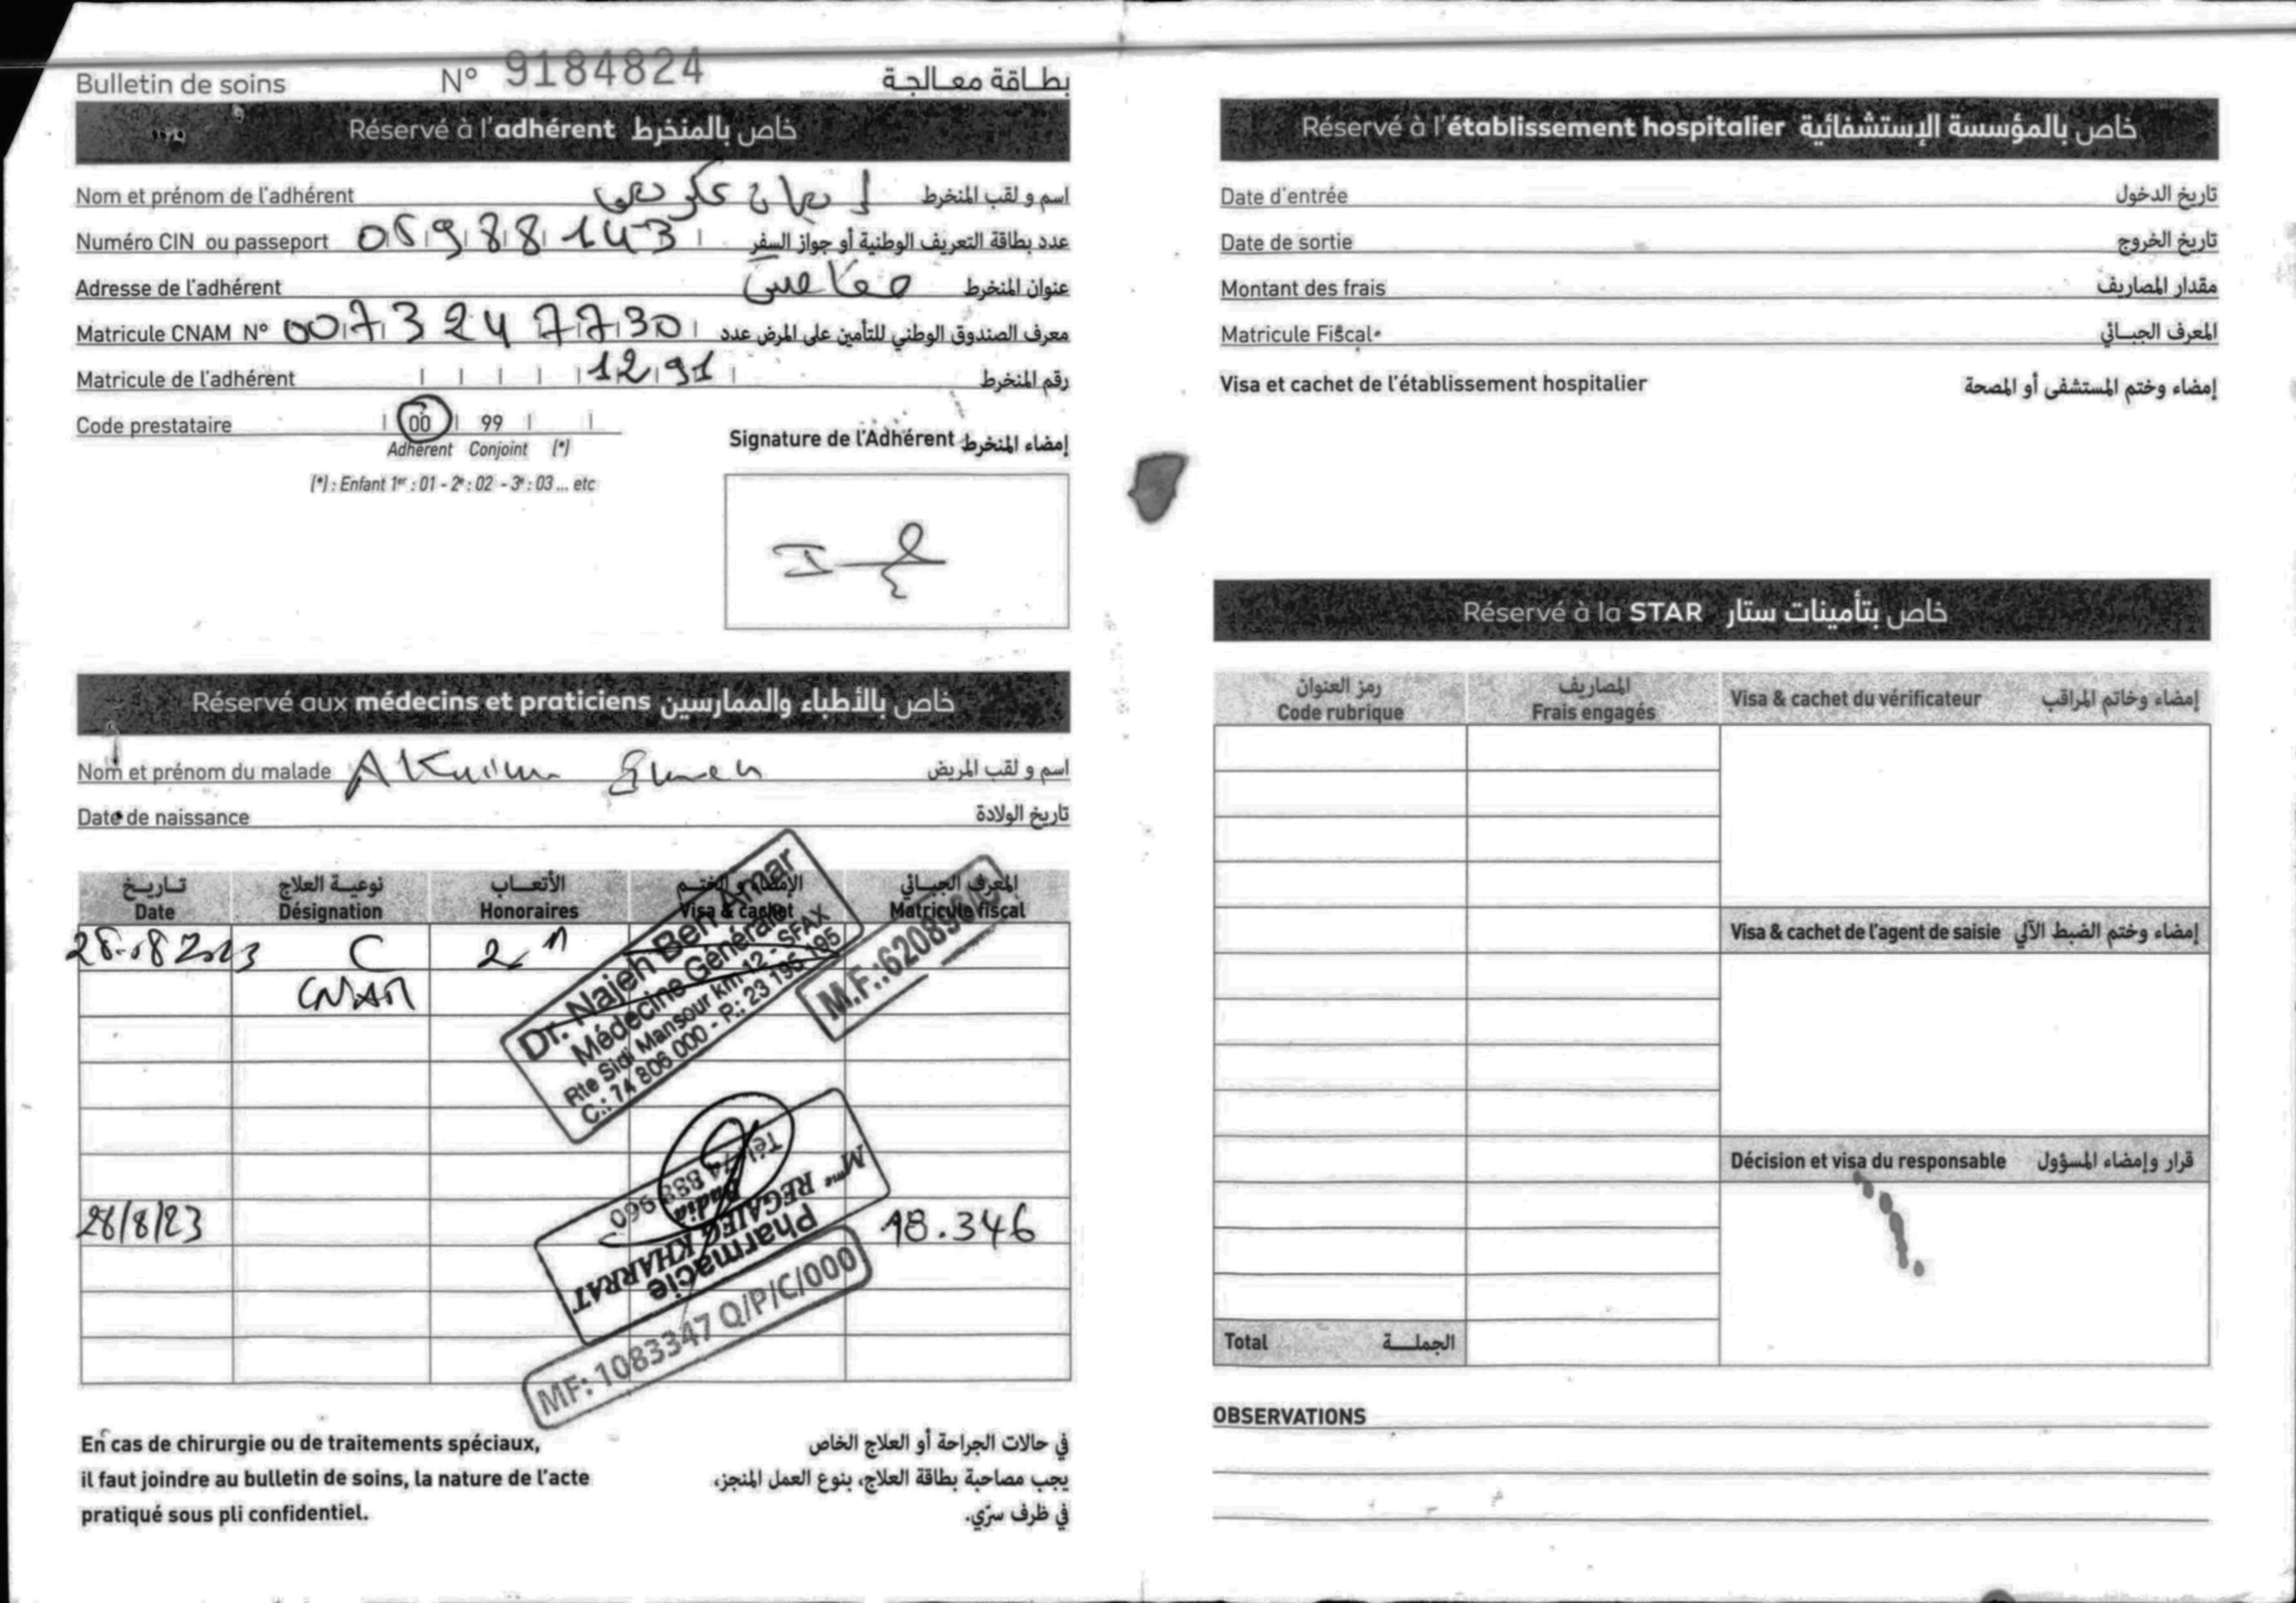 Bulletin de soins N° 9184824 بطاقة معالجة
Réservé à l'adhérent خاص بالمنخرط
Nom et prénom de l'adhérent اسم و لقب المنخرط
Numéro CIN ou passeport 05988143 عدد بطاقة التعريف الوطنية أو جواز السفر
Adresse de l'adhérent صفاقس عنوان المنخرط
Matricule CNAM N° 0073247730 معرف الصندوق الوطني للتأمين على المرض عدد
Matricule de l'adhérent 1291 رقم المنخرط
Code prestataire 00 99
Adhérent Conjoint (*)
(*) : Enfant 1er : 01 - 2e : 02 - 3e : 03 ... etc
Signature de l'Adhérent إمضاء المنخرط
Réservé aux médecins et praticiens خاص بالأطباء والممارسين
Nom et prénom du malade اسم و لقب المريض
Date de naissance تاريخ الولادة
تاريخ نوعية العلاج الأتعاب الإمضاء و الختم المعرف الجبائي
Date Désignation Honoraires Visa & cachet Matricule fiscal
28.08 2023 C
CNAM
Dr. Najeh Ben Amar
Médecine Générale
Rte Sidi Mansour km 12 - SFAX
C.: 74 806 000 - P.: 23 196 195
28/8/23 18.346
Pharmacie
REGAIEG KHARRAT
Badia
Mme
MF: 1083347 Q/P/C/000
En cas de chirurgie ou de traitements spéciaux,
il faut joindre au bulletin de soins, la nature de l'acte
pratiqué sous pli confidentiel.
في حالات الجراحة أو العلاج الخاص
يجب مصاحبة بطاقة العلاج، بنوع العمل المنجز،
في ظرف سرّي.
Réservé à l'établissement hospitalier خاص بالمؤسسة الإستشفائية
Date d'entrée تاريخ الدخول
Date de sortie تاريخ الخروج
Montant des frais مقدار المصاريف
Matricule Fiscal المعرف الجبائي
Visa et cachet de l'établissement hospitalier إمضاء وختم المستشفى أو المصحة
Réservé à la STAR خاص بتأمينات ستار
رمز العنوان المصاريف
Code rubrique Frais engagés Visa & cachet du vérificateur إمضاء وخاتم المراقب
Visa & cachet de l'agent de saisie إمضاء وختم الضبط الآلي
Décision et visa du responsable قرار وإمضاء المسؤول
Total الجملة
OBSERVATIONS